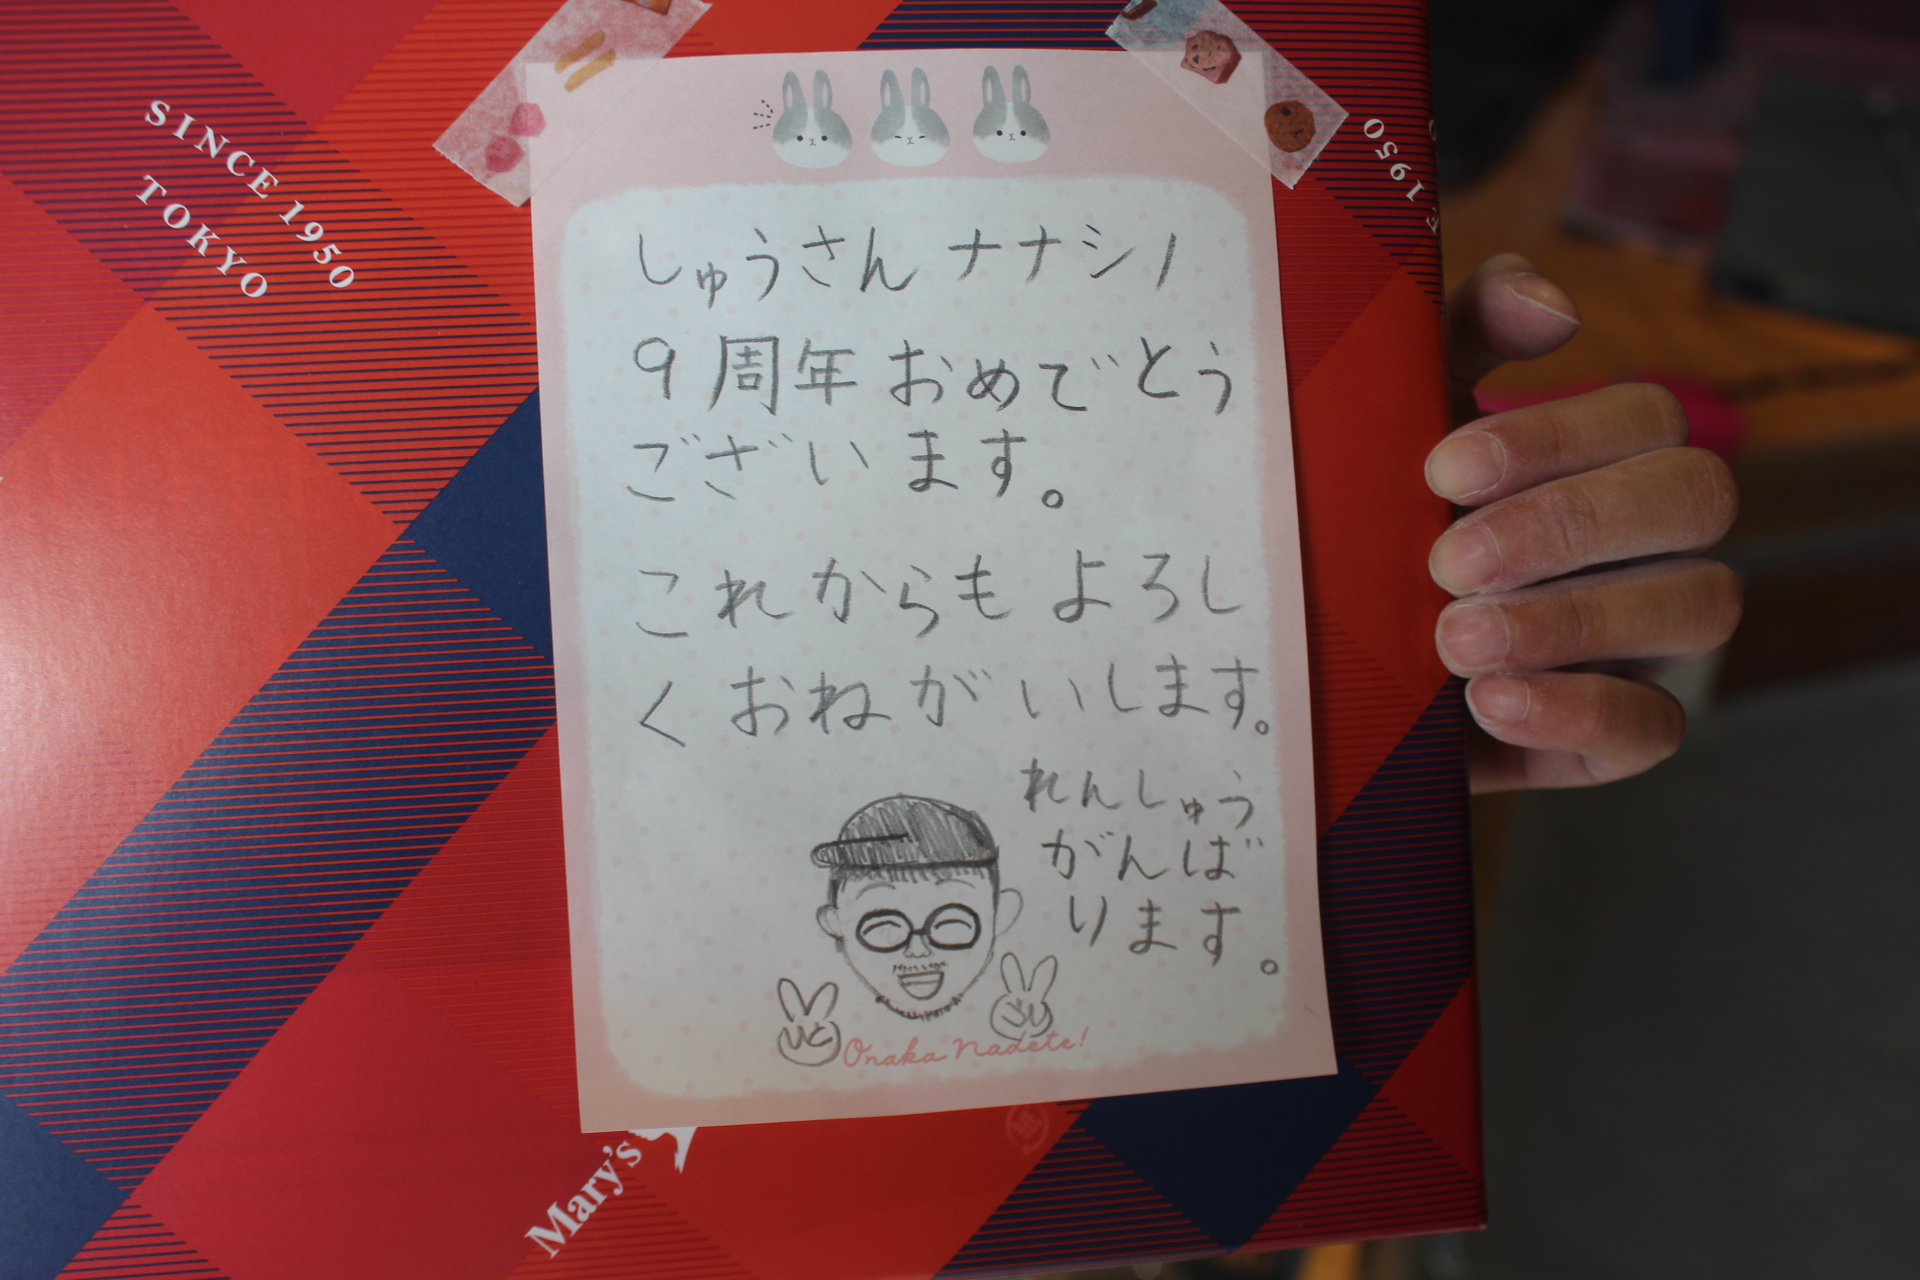 SINCE 1950
TOKYO
1950
しゅうさん ナナシノ
9周年 おめでとう
ございます。
これからも よろし
く おねがいします。
れんしゅう
がんば
ります。
Onaka Nadete!
Mary's